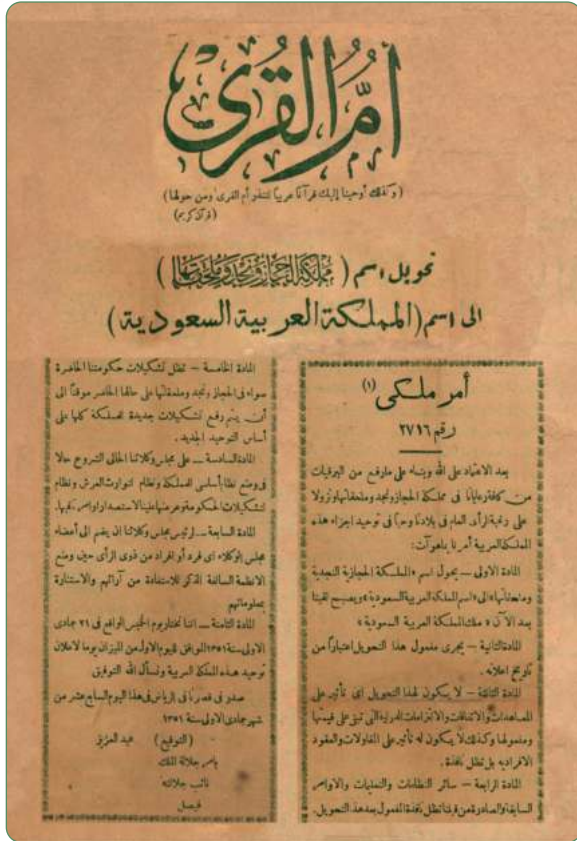 أم القرى
( وكذلك أوحينا إليك قرآنا عربيا لتنذر أم القرى ومن حولها )
( قرآن كريم )
تحويل اسم ( مملكة الحجاز ونجد وملحقاتها )
الى اسم ( المملكة العربية السعودية )
أمر ملكى (١)
رقم ٢٧١٦
بعد الاعتماد على الله وبناء على مارفع من البرقيات
من كافة رعايانا فى مملكة الحجاز ونجد وملحقاتها ونزولا
على رغبة الرأى العام فى بلادنا وحبا فى توحيد اجزاء هذه
المملكة العربية أمرنا بما هو آت :
المادة الاولى — يحول اسم «المملكة الحجازية النجدية
وملحقاتها» الى «اسم المملكة العربية السعودية» ويصبح لقبنا
بعد الآن «ملك المملكة العربية السعودية»
المادة الثانية — يجرى مفعول هذا التحويل اعتبارا من
تاريخ اعلانه .
المادة الثالثة — لا يكون لهذا التحويل اى تأثير على
المعاهدات والاتفاقات والالتزامات الدولية التى تبقى على قيمتها
ومفعولها وكذلك لا يكون له تأثير على المقاولات والعقود
الافرادية بل تظل نافذة .
المادة الرابعة — سائر النظامات والتعليمات والاوامر
السابقة والصادرة من قبلنا تظل نافذة المفعول بعد هذا التحويل .
المادة الخامسة — تظل تشكيلات حكومتنا الحاضرة
سواء فى الحجاز ونجد وملحقاتها على حالها الحاضر موقتا الى
أن يتم وضع تشكيلات جديدة للمملكة كلها على
أساس التوحيد الجديد .
المادة السادسة — على مجلس وكلائنا الحالى الشروع حالا
فى وضع نظام أساسى للمملكة ونظام لتوارث العرش ونظام
لتشكيلات الحكومة وعرضها علينا لاستصدار اوامرنا فيها .
المادة السابعة — لرئيس مجلس وكلائنا ان يضم الى أعضاء
مجلس الوكلاء اى فرد أو افراد من ذوى الرأى حين وضع
الانظمة السالفة الذكر للاستفادة من آرائهم والاستنارة
بمعلوماتهم
المادة الثامنة — اننا نختار يوم الخميس الواقع فى ٢١ جمادى
الاولى سنة ١٣٥١ الموافق لليوم الاول من الميزان يوما لاعلان
توحيد هذه المملكة العربية ونسأل الله التوفيق
صدر فى قصرنا فى الرياض فى هذا اليوم السابع عشر من
شهر جمادى الاولى سنة ١٣٥١
( التوقيع ) عبد العزيز
بامر جلالة الملك
نائب جلالته
فيصل